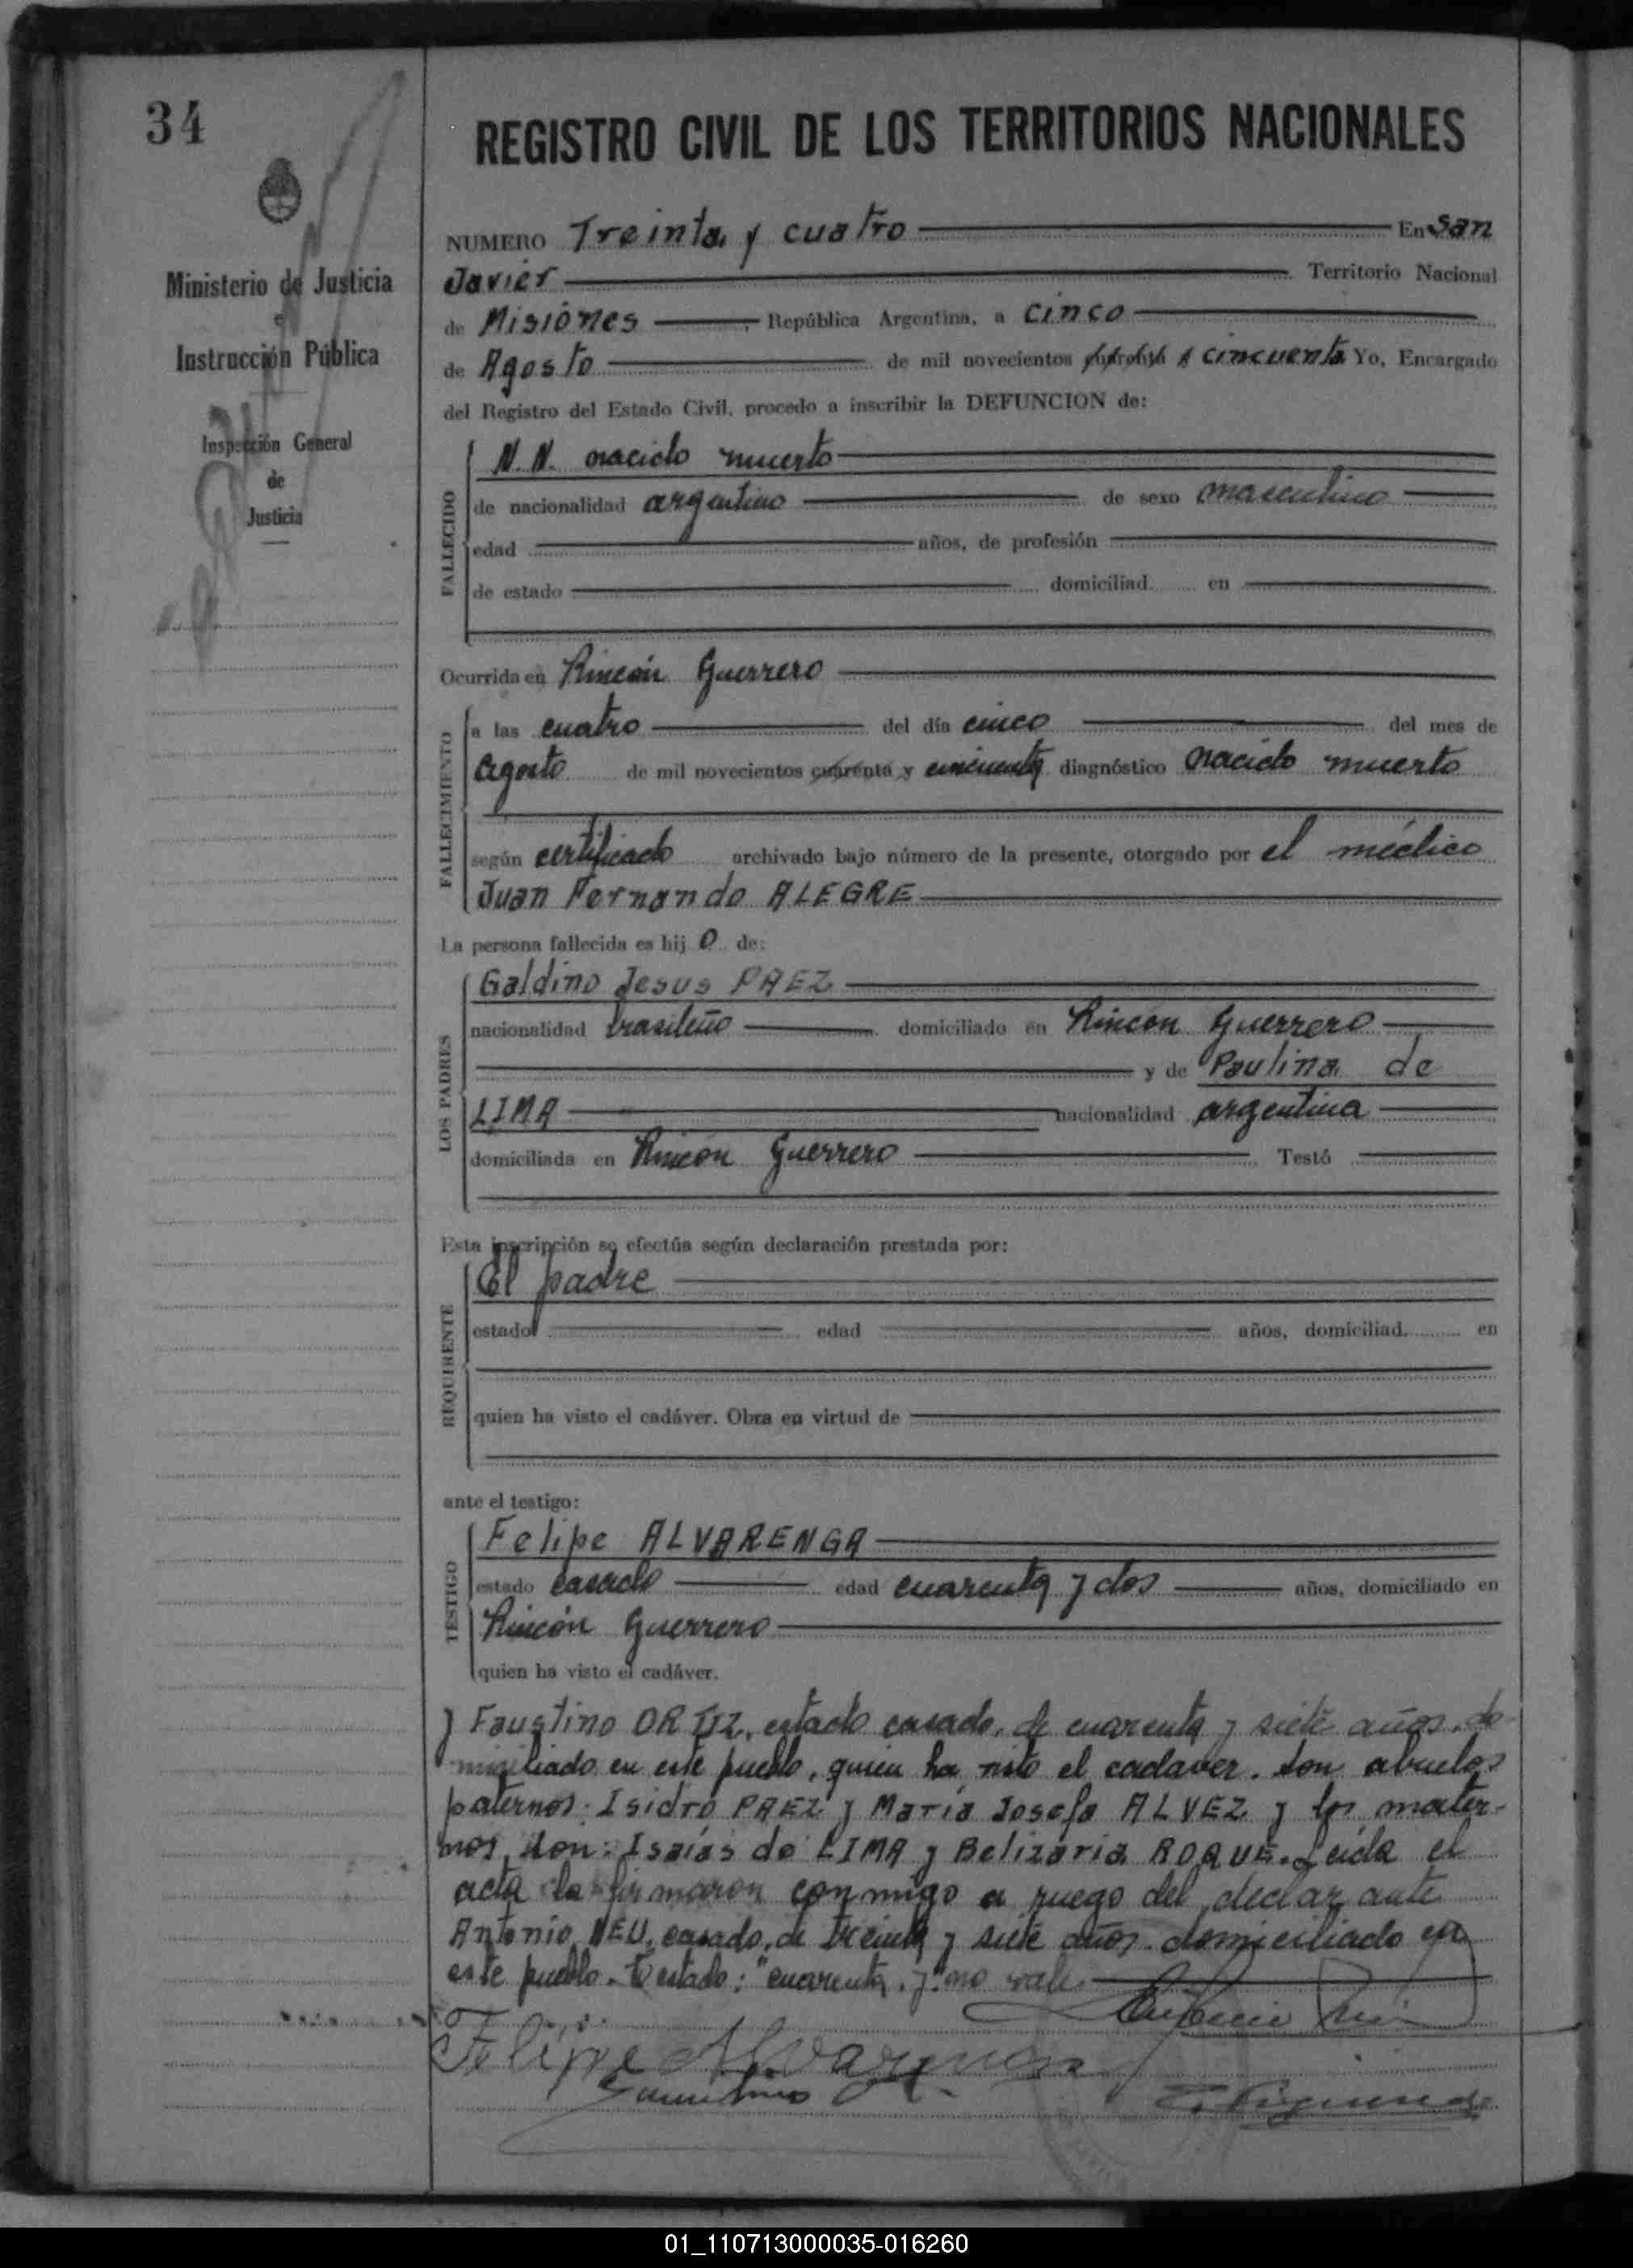 34
REGISTRO CIVIL DE LOS TERRITORIOS NACIONALES
Ministerio de Justicia
e
Instrucción Pública
Inspección General
de
Justicia
NUMERO Treinta y cuatro En San
Javier Territorio Nacional
de Misiones, República Argentina, a cinco
de Agosto de mil novecientos cincuenta Yo, Encargado
del Registro del Estado Civil, procedo a inscribir la DEFUNCION de:
FALLECIDO
N.N. nacido muerto
de nacionalidad argentino de sexo masculino
edad años, de profesión
de estado domiciliad en
Ocurrida en Rincón Guerrero
FALLECIMIENTO
a las cuatro del día cinco del mes de
Agosto de mil novecientos cuarenta y cincuenta diagnóstico nacido muerto
según certificado archivado bajo número de la presente, otorgado por el médico
Juan Fernando ALEGRE
La persona fallecida es hij o de:
LOS PADRES
Galdino Jesus PAEZ
nacionalidad brasileño domiciliado en Rincón Guerrero
y de Paulina de
LIMA nacionalidad argentina
domiciliada en Rincón Guerrero Testó
Esta inscripción se efectúa según declaración prestada por:
REQUIRENTE
El padre
estado edad años, domiciliad en
quien ha visto el cadáver. Obra en virtud de
ante el testigo:
TESTIGO
Felipe ALVARENGA
estado casado edad cuarenta y dos años, domiciliado en
Rincón Guerrero
quien ha visto el cadáver.
y Faustino ORTIZ, estado casado, de cuarenta y siete años, do-
miciliado en este pueblo, quien ha visto el cadaver. Son abuelos
paternos: Isidro PAEZ y María Josefa ALVEZ y los mater-
nos, son: Isaías de LIMA y Belizaria ROQUE. Leida el
acta la firmaron conmigo a ruego del declarante
Antonio NEU, casado, de treinta y siete años domiciliado en
este pueblo. Testado: "cuarenta y" no vale.
Felipe Alvarenga
01_110713000035-016260